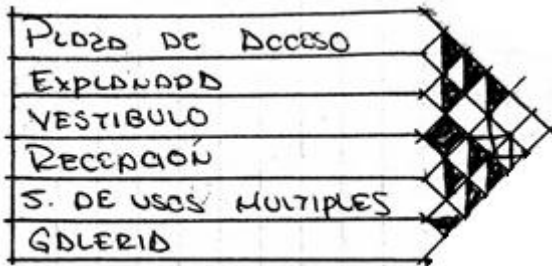 PLAZA DE ACCESO
EXPLANADA
VESTIBULO
RECEPCIÓN
S. DE USOS MULTIPLES
GALERIA